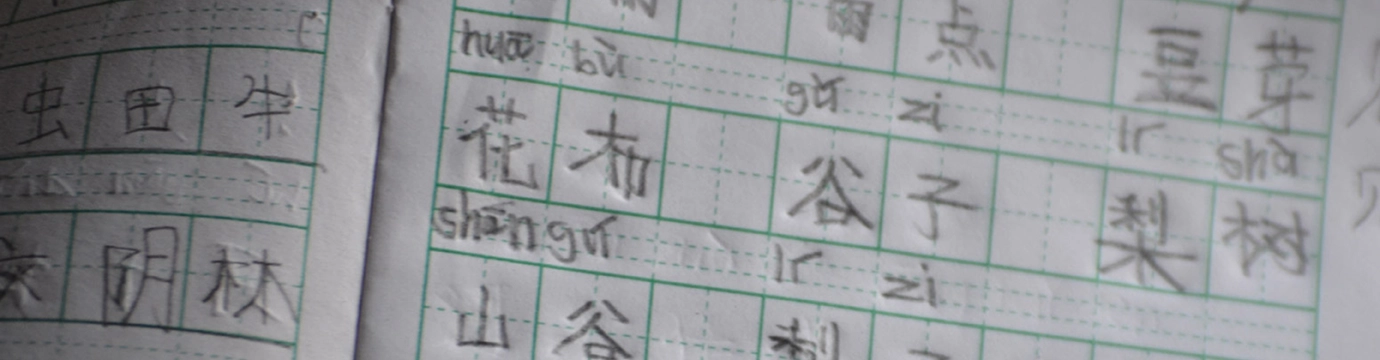 点 豆芽
huā bù gǔ zi lí shù
花布 谷子 梨树
shān gǔ lí zi
山谷 梨
虫田牛
阴林